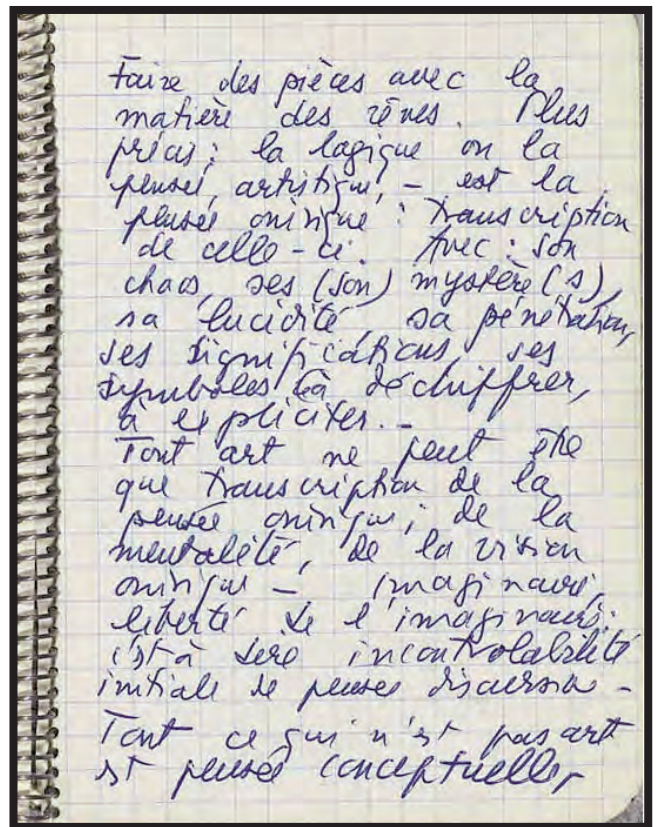 Faire des pièces avec la
matière des rêves. Plus
précis : la logique ou la
pensée, artistique, – est la
pensée onirique : transcription
de celle-ci. Avec : son
chaos, ses (son) mystère(s),
sa lucidité, sa pénétration,
ses significations, ses
symboles (à déchiffrer,
à expliciter. –
Tout art ne peut être
que transcription de la
pensée onirique ; de la
mentalité, de la vision
onirique – imaginaire,
liberté de l'imaginaire :
c'est à dire incontrolabilité
initiale de pensée discursive –
Tout ce qui n'est pas art
est pensée conceptuelle,